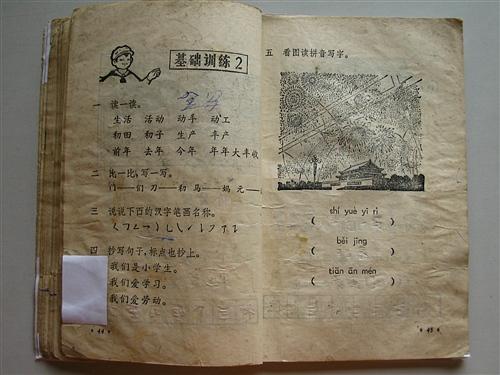 基础训练2
一 读一读。
生活 活动 动手 动工
和田 和子 生产 丰产
前年 去年 今年 年年大丰收
二 比一比,写一写。
门——们 刀—— 马——妈 元——
三 说说下面的汉字笔画名称。
四 抄写句子,标点也抄上。
我们是小学生。
我们爱学习。
我们爱劳动。
• 44 •
五 看图读拼音写字。
shí yuè yī rì
( )
běi jīng
( )
tiān ān mén
( )
• 45 •